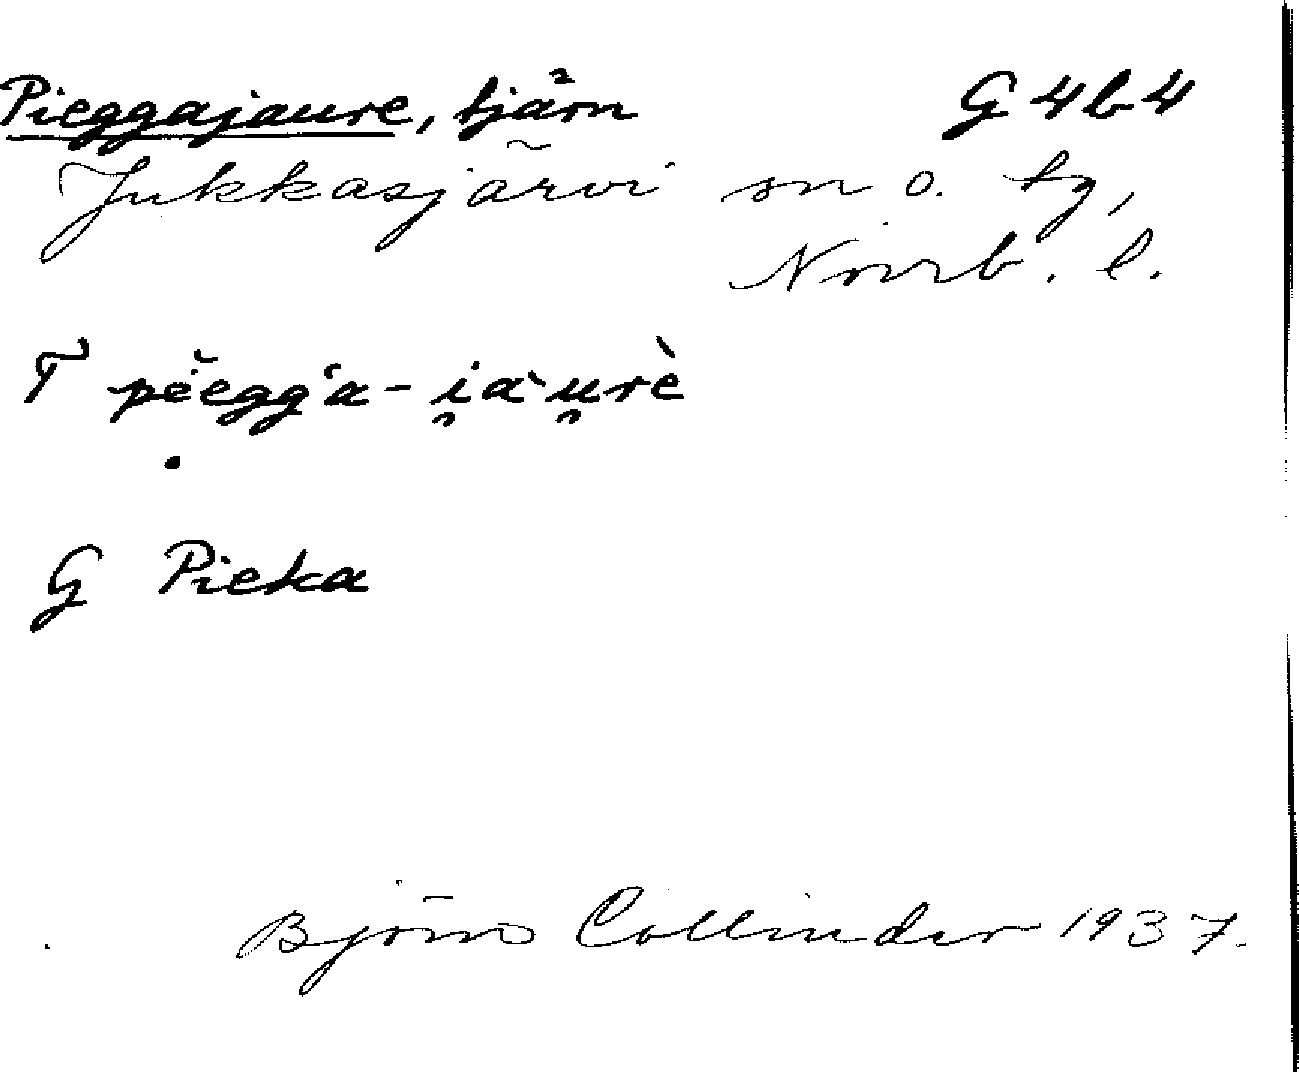 Pieggajaure, tjärn G 4 b 4
Jukkasjärvi sn o. tg,
Norrb. l.
T pẹ̆egg'a - i̯a`u̯rè
G Pieka
Björn Collinder 1937.